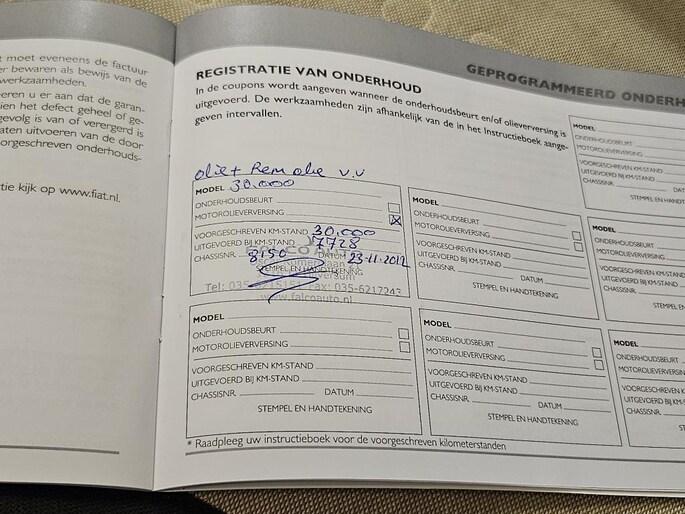 t moet eveneens de factuur
er bewaren als bewijs van de
werkzaamheden.
eren u er aan dat de garan-
ien het defect geheel of ge-
gevolg is van of verergerd is
aten uitvoeren van de door
orgeschreven onderhouds-
tie kijk op www.fiat.nl.
GEPROGRAMMEERD ONDERH
REGISTRATIE VAN ONDERHOUD
In de coupons wordt aangeven wanneer de onderhoudsbeurt en/of olieverversing is
uitgevoerd. De werkzaamheden zijn afhankelijk van de in het Instructieboek aange-
geven intervallen.
olie + Rem olie v.v
MODEL 30.000
ONDERHOUDSBEURT
MOTOROLIEVERVERSING
VOORGESCHREVEN KM-STAND 30.000
UITGEVOERD BIJ KM-STAND 17728
CHASSISNR. 8150 DATUM 23-11-2012
STEMPEL EN HANDTEKENING
Fax: 035-6217243
www.falcoauto.nl
MODEL
ONDERHOUDSBEURT
MOTOROLIEVERVERSING
VOORGESCHREVEN KM-STAND
UITGEVOERD BIJ KM-STAND
CHASSISNR. DATUM
STEMPEL EN HANDTEKENING
MODEL
ONDERHOUDSBEURT
MOTOROLIEVERVERSING
VOORGESCHREVEN KM-STAND
UITGEVOERD BIJ KM-STAND
CHASSISNR. DATUM
STEMPEL EN HANDTEKENING
MODEL
ONDERHOUDSBEURT
MOTOROLIEVERVERSING
VOORGESCHREVEN KM-STAND
UITGEVOERD BIJ KM-STAND
CHASSISNR. DATUM
STEMPEL EN HANDTEKENING
MODEL
ONDERHOUDSBEURT
MOTOROLIEVERVERSING
VOORGESCHREVEN KM-STAND
UITGEVOERD BIJ KM-STAND
CHASSISNR. DAT
STEMPEL EN HAN
MODEL
ONDERHOUDSBEURT
MOTOROLIEVERVERSIN
VOORGESCHREVEN KM
UITGEVOERD BIJ KM-STA
CHASSISNR.
STEMPE
MODEL
ONDERHOUDSBEURT
MOTOROLIEVERVERSIN
VOORGESCHREVEN KM-
UITGEVOERD BIJ KM-STA
CHASSISNR.
STEMPEL
* Raadpleeg uw instructieboek voor de voorgeschreven kilometerstanden